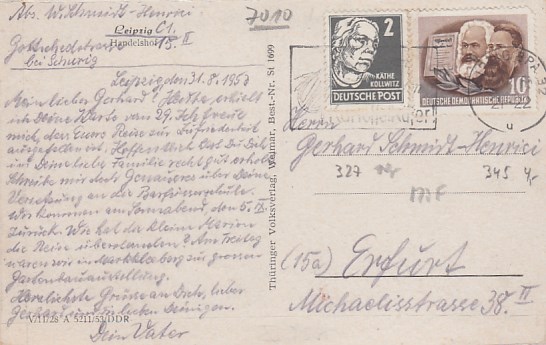 Abs. W. Schmidt-Henrici
Leipzig C1.
Handelshof
bei Schurig
7010
Leipzig, den 31.8.1953
Mein lieber Gerhard! Heute erhielt
ich Deine Karte vom 29. Ich freue
mich, dass Eure Reise zur Zufriedenheit
ausgefallen ist. Hoffentlich hast Du Dich
und Deine liebe Familie recht gut erholt.
Schreibe mir doch Genaueres über Deine
Versetzung an die
Wir kommen am Sonnabend, den 5. IX.
zurück. Wie hat die kleine Marion
die Reise überstanden? Am Freitag
waren wir in Markkleeberg zur grossen
Gartenbauausstellung.
Herzlichste Grüsse an Dich, lieber
Gerhard und die lieben Deinigen.
Dein Vater
V/11/28 A 5211/53/DDR
Thüringer Volksverlag, Weimar, Best.-Nr. SI 1699
2
KÄTHE
KOLLWITZ
DEUTSCHE POST
10
DEUTSCHE DEMOKRATISCHE REPUBLIK
Herrn
Gerhard Schmidt-Henrici
327
345
M.F
(15a) Erfurt
Michaelisstrasse 38. II